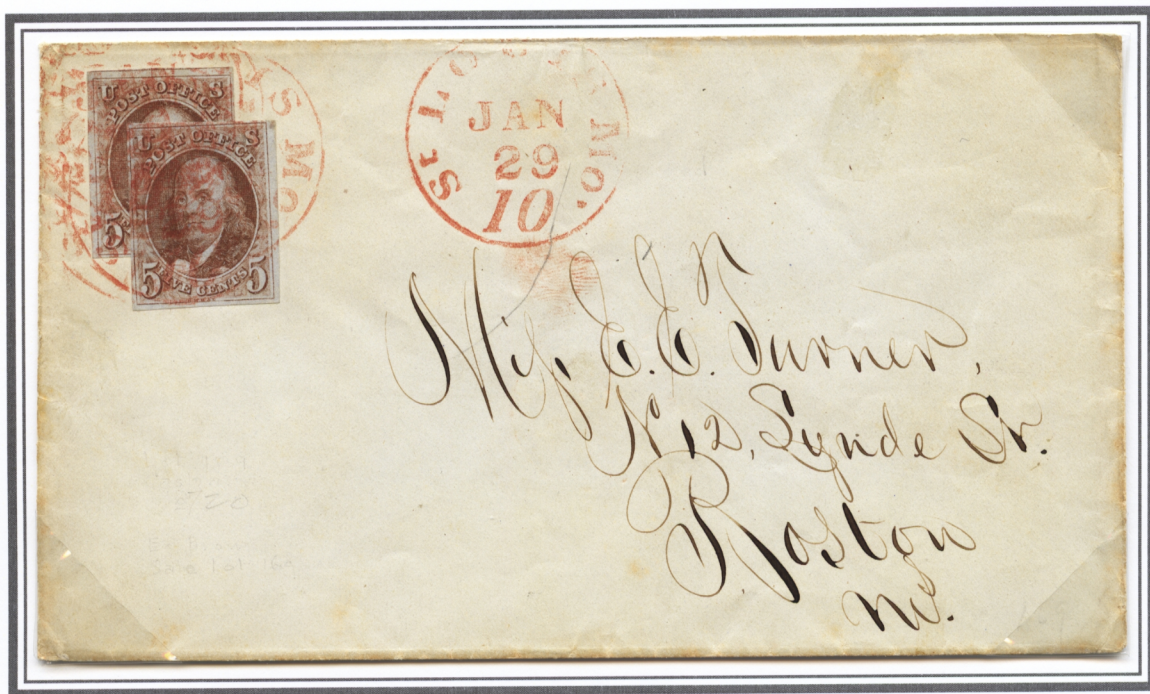 U S
POST OFFICE
5
U S
POST OFFICE
5 FIVE CENTS 5
S MO
ST LOUIS MO.
JAN
29
10
Miss E. E. Turner,
N 12, Lynde St.
Boston
Ms.